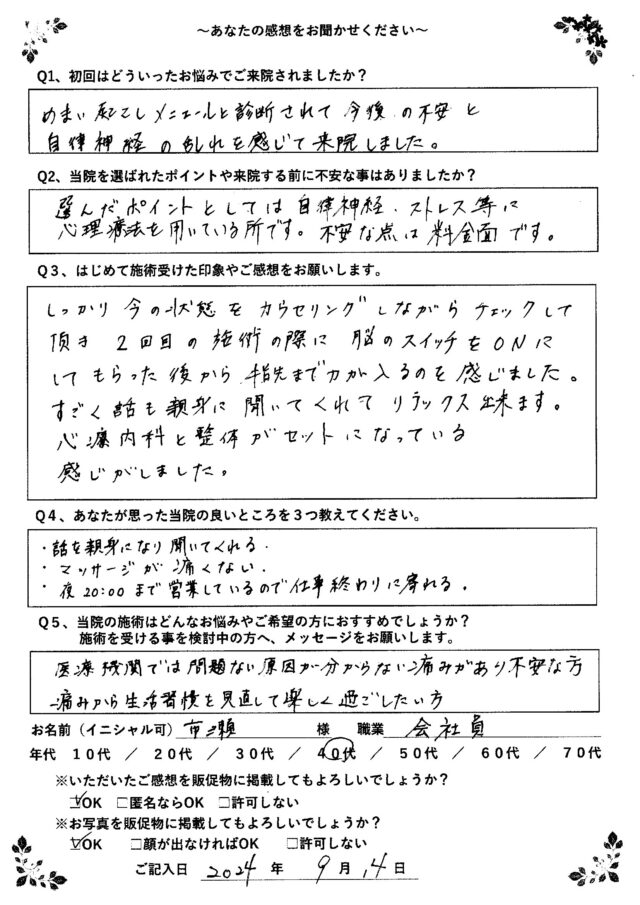 ～あなたの感想をお聞かせください～
Q1、初回はどういったお悩みでご来院されましたか？
めまい起こしメニエールと診断されて今後の不安と
自律神経の乱れを感じて来院しました。
Q2、当院を選ばれたポイントや来院する前に不安な事はありましたか？
選んだポイントとしては自律神経、ストレス等に
心理療法を用いている所です。不安な点は料金面です。
Q３、はじめて施術受けた印象やご感想をお願いします。
しっかり今の状態をカウセリングしながらチェックして
頂き２回目の施術の際に脳のスイッチをONに
してもらった後から指先まで力が入るのを感じました。
すごく話も親身に聞いてくれてリラックス出来ます。
心療内科と整体がセットになっている
感じがしました。
Q４、あなたが思った当院の良いところを３つ教えてください。
・話を親身になり聞いてくれる．
・マッサージが痛くない．
・夜20:00まで営業しているので仕事終わりに寄れる．
Q５、当院の施術はどんなお悩みやご希望の方におすすめでしょうか？
施術を受ける事を検討中の方へ、メッセージをお願いします。
医療機関では問題ない原因が分からない痛みがあり不安な方
痛みから生活習慣を見直して楽しく過ごしたい方
お名前（イニシャル可） 市瀬 様 職業 会社員
年代 １０代 ／ ２０代 ／ ３０代 ／ ４０代 ／ ５０代 ／ ６０代 ／ ７０代
※いただいたご感想を販促物に掲載してもよろしいでしょうか？
☑OK □匿名ならOK □許可しない
※お写真を販促物に掲載してもよろしいでしょうか？
☑OK □顔が出なければOK □許可しない
ご記入日 2024 年 9 月 14 日